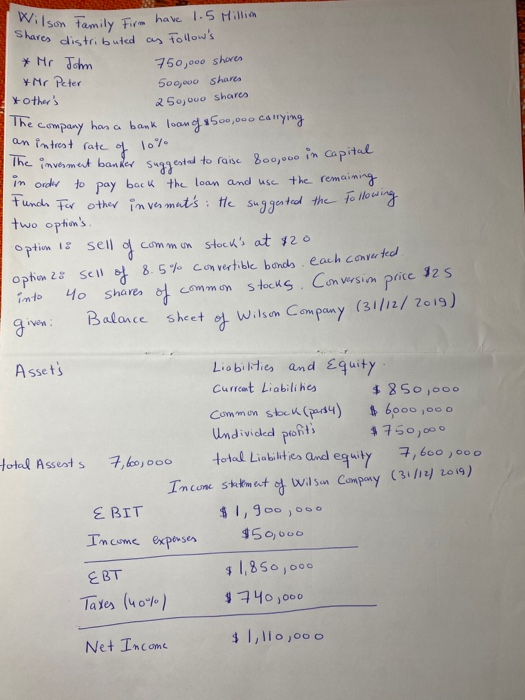 Wilson Family Firm have 1.5 Million
Shares distributed as Follow's
* Mr John 750,000 shares
* Mr Peter 500,000 shares
* other's 250,000 shares
The company has a bank loan of $500,000 carrying
an intrest rate of 10%
The invesment banker suggested to raise 800,000 in capital
in order to pay back the loan and use the remaining
Funds For other invesmat's : He suggested the following
two option's.
option 1: sell of common stock's at $20
option 2: sell of 8.5% convertible bonds. each converted
into 40 shares of common stocks. Conversion price $25
given: Balance sheet of Wilson Company (31/12/2019)
Asset's Liabilities and Equity
Current Liabilities $850,000
Common stock (par $4) $6000,000
Undivided profit's $750,000
total Assests 7,600,000 total Liabilities and equity 7,600,000
Income statement of Wilson Company (31/12/2019)
EBIT $1,900,000
Income expenses $50,000
EBT $1,850,000
Taxes (40%) $740,000
Net Income $1,110,000